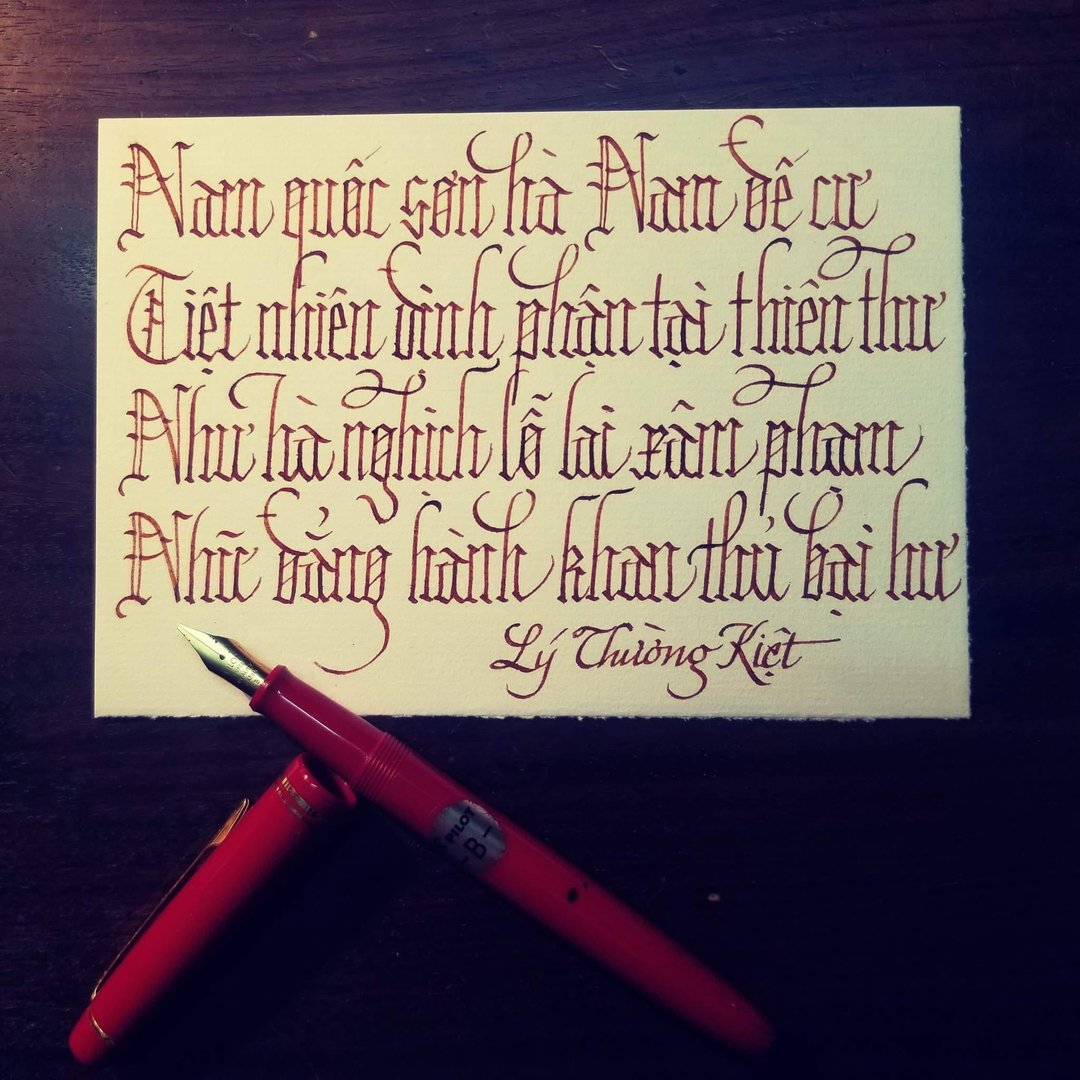 Nam quốc sơn hà Nam đế cư
Tiệt nhiên định phận tại thiên thư
Như hà nghịch lỗ lai xâm phạm
Nhữ đẳng hành khan thủ bại hư
Lý Thường Kiệt
PILOT
-B-